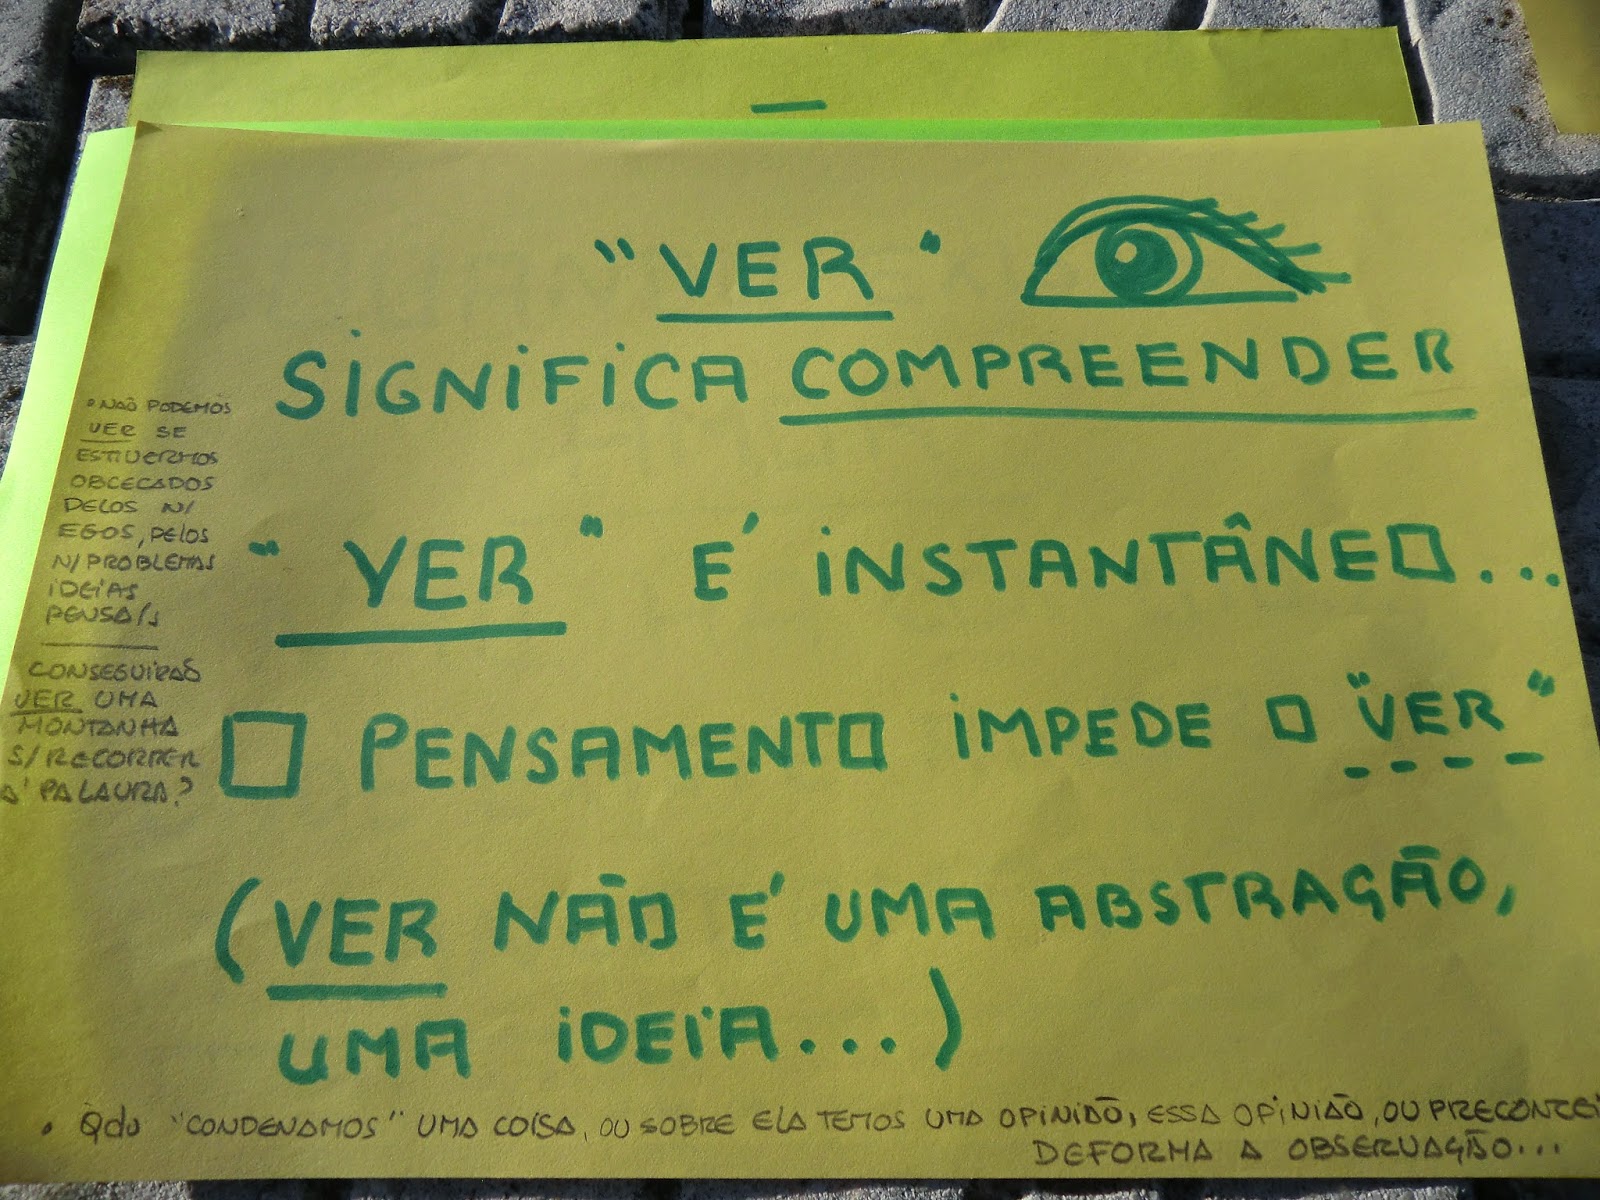 "VER"
SIGNIFICA COMPREENDER
"VER" É INSTANTÂNEO...
O PENSAMENTO IMPEDE O "VER"
(VER NÃO É UMA ABSTRAÇÃO,
UMA IDEIA...)
• NÃO PODEMOS
VER SE
ESTIVERMOS
OBCECADOS
PELOS N/
EGOS, PELOS
N/PROBLEMAS
IDEIAS
PENSA/S
CONSEGUIRÁS
VER UMA
MONTANHA
S/RECORRER
À PALAVRA?
• Qdo "CONDENAMOS" UMA COISA, OU SOBRE ELA TEMOS UMA OPINIÃO, ESSA OPINIÃO, OU PRECONCEI
DEFORMA A OBSERVAÇÃO...